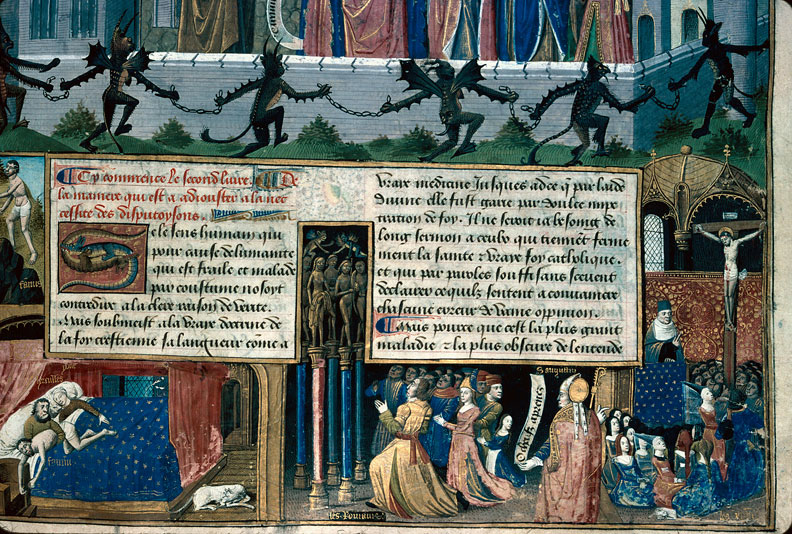 Cy commence le second livre. De
la maniere qui est a adiouster a la nec
cessite des disputoysons.
Se le sens humain qui
pour cause de lumanite
qui est fraile et malade
par coustume nosoyt
contredire a la clere raison de verite.
Mais soubmeist a la vraye doctrine de
la foy crestienne sa langueur come a
vraye medicine Jusques adce q̃ par laide
diuine elle fust garie par doulce impe
tration de foy. Il ne seroit ia besoing de
long sermon a ceulx qui tiennẽt ferme
ment la sainte et vraye foy catholique.
et qui par paroles souffisans sceuent
declairer ce quilz sentent a conuaincre
chascune erreur de vaine oppinion.
Mais pource que cest la plus grant
maladie et la plus obscure de lentende
faunus
hercules
faunus
S augustin
les Rommains